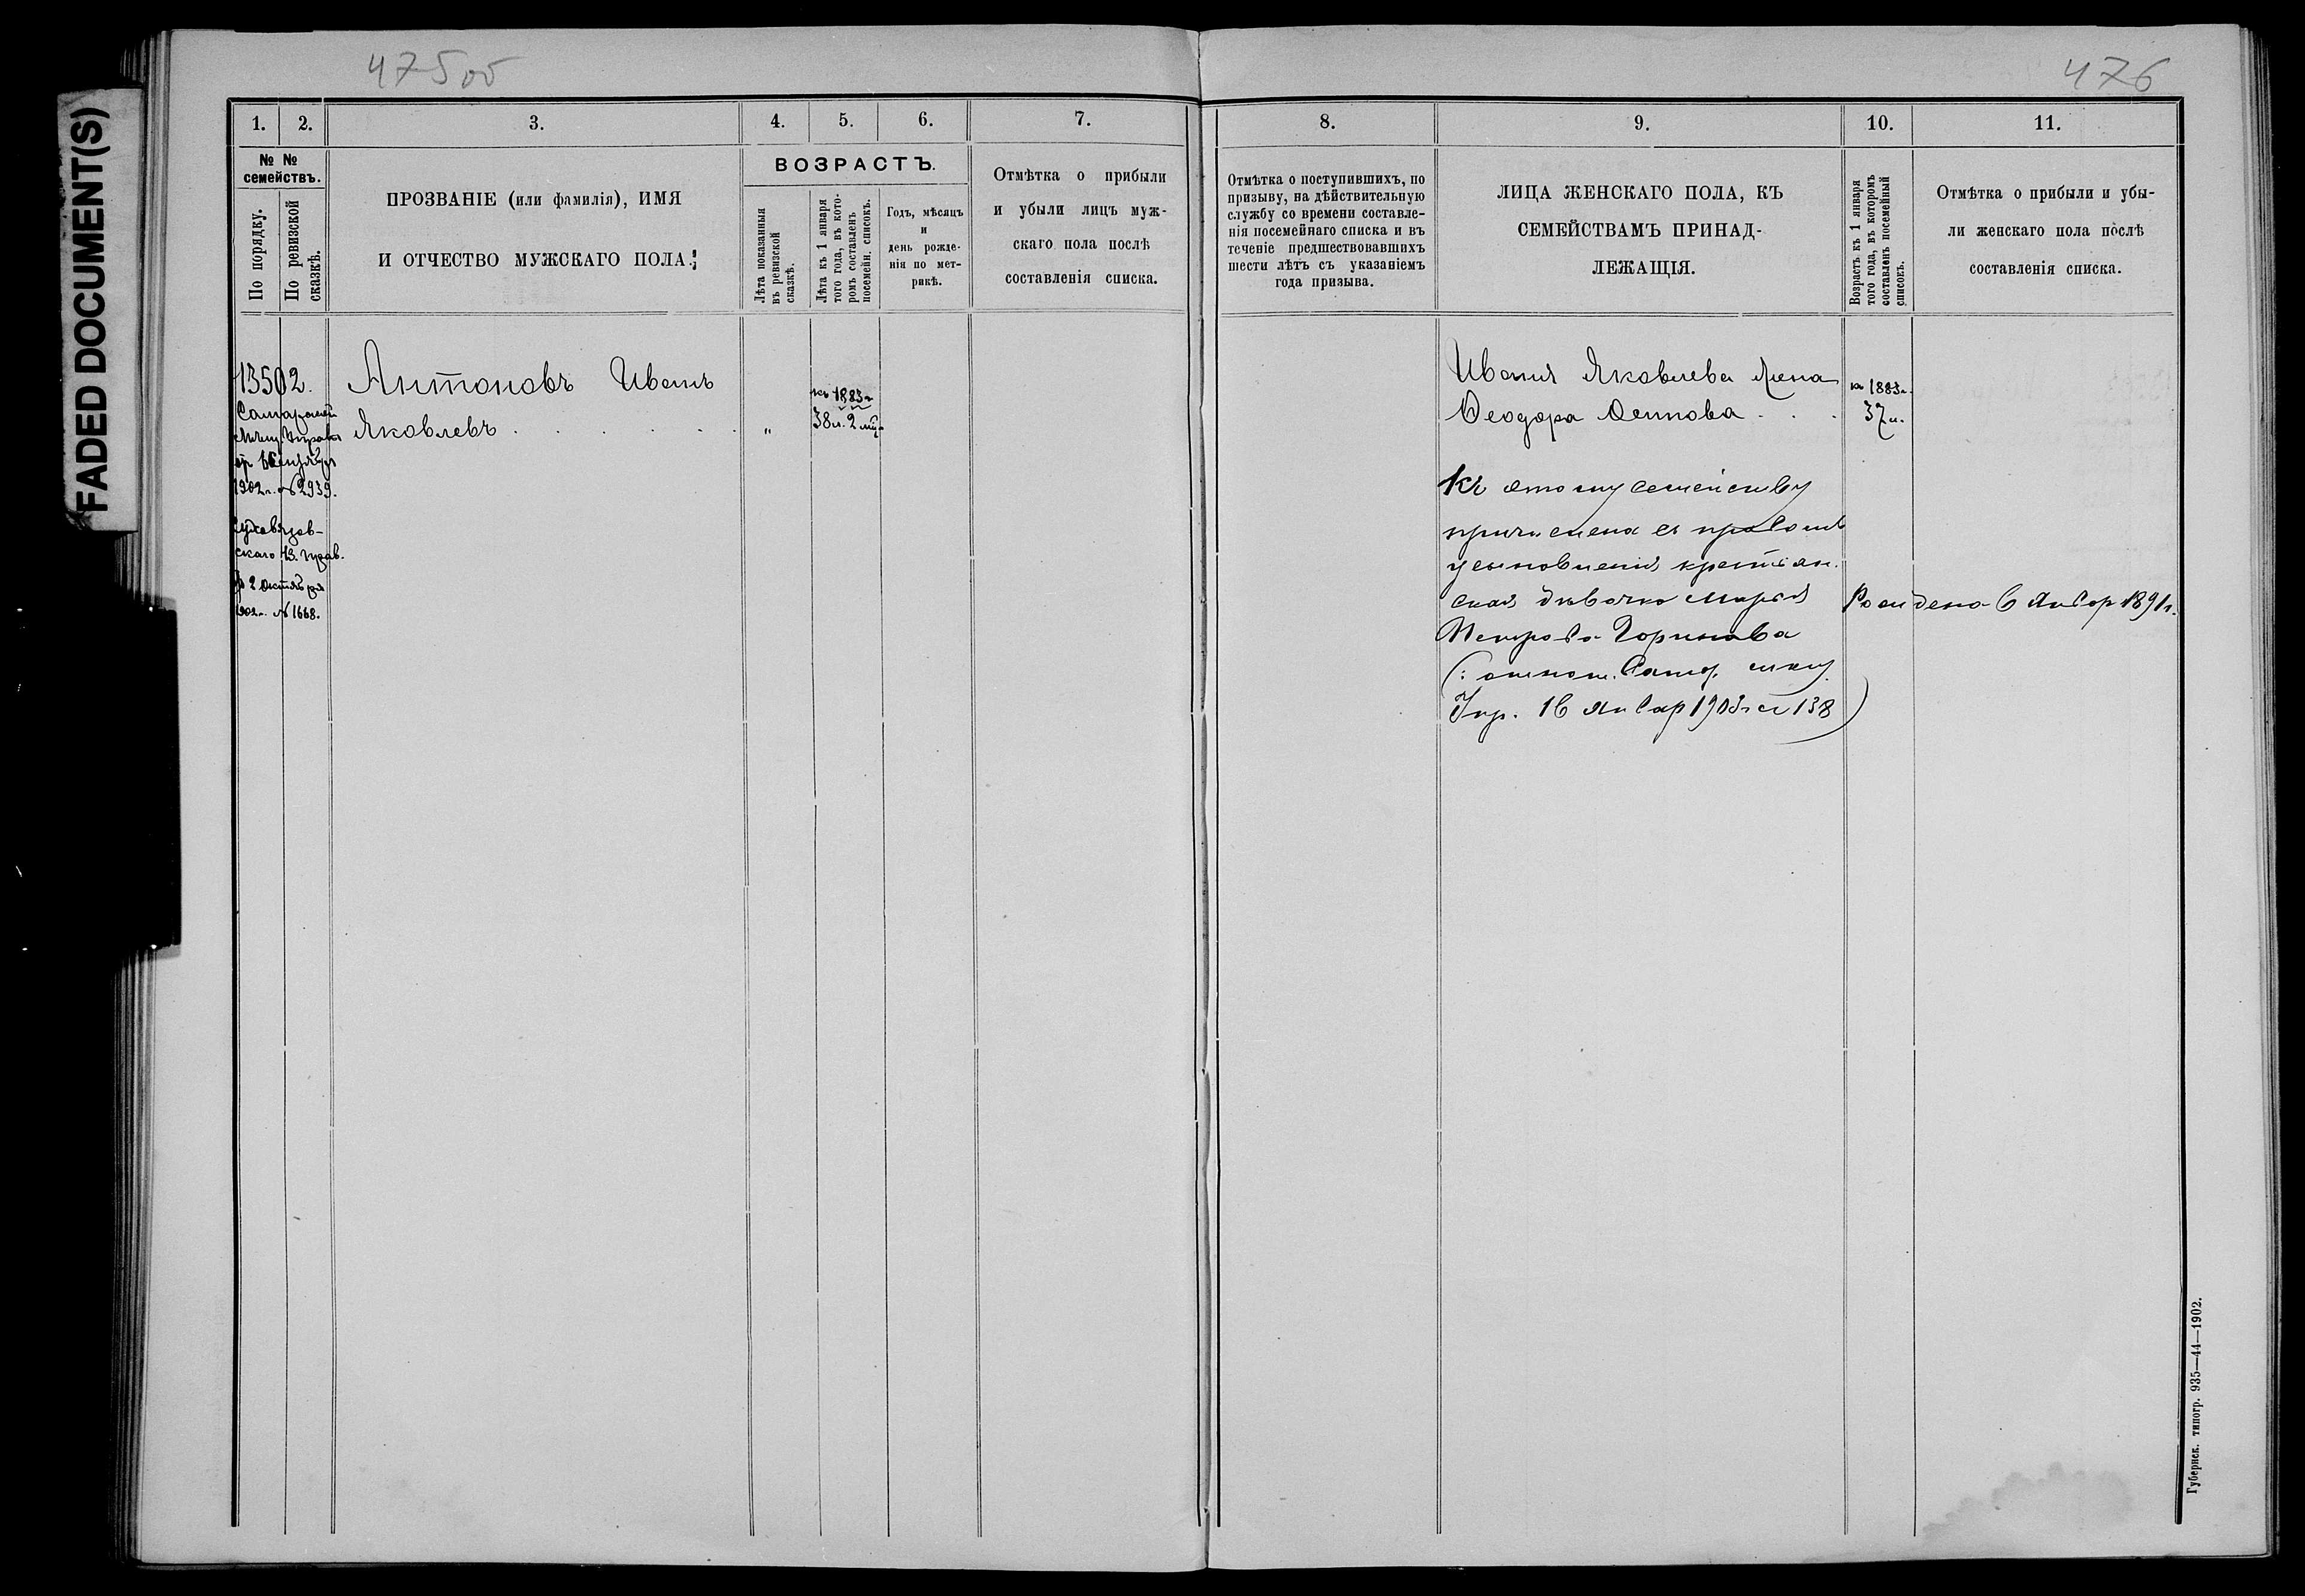 FADED DOCUMENT(S)
475об
476
1. 2. 3. 4. 5. 6. 7.
№ № семействъ.
По порядку.
По ревизской сказкѣ.
ПРОЗВАНІЕ (или фамилія), ИМЯ
И ОТЧЕСТВО МУЖСКАГО ПОЛА.
ВОЗРАСТЪ.
Лѣта показанныя
въ ревизской
сказкѣ.
Лѣта къ 1 января
того года, въ кото-
ромъ составленъ
посемейн. списокъ.
Годъ, мѣсяцъ
и
день рожде-
нія по мет-
рикѣ.
Отмѣтка о прибыли
и убыли лицъ муж-
скаго пола послѣ
составленія списка.
13502.
Самарской
Мѣщ. Управы
1902г. № 2939.
скаго
2 Октября
1902г. № 1668.
Антоновъ Иванъ
Яковлевъ . . . . . .
„
къ 1883г
38л. 2 мц
8. 9. 10. 11.
Отмѣтка о поступившихъ, по
призыву, на дѣйствительную
службу со времени составле-
нія посемейнаго списка и въ
теченіе предшествовавшихъ
шести лѣтъ съ указаніемъ
года призыва.
ЛИЦА ЖЕНСКАГО ПОЛА, КЪ
СЕМЕЙСТВАМЪ ПРИНАД-
ЛЕЖАЩІЯ.
Возрастъ къ 1 января
того года, въ которомъ
составленъ посемейный
списокъ.
Отмѣтка о прибыли и убы-
ли женскаго пола послѣ
составленія списка.
Ивана Яковлева жена
Ѳеодора Осипова . . .
къ 1883г.
37л.
Къ этому семейству
причислена съ правомъ
усыновленія крестьян.
ская дѣвочка Марья
Петрова Горинова
(: отнош. Самар. мѣщ.
Упр. 16 Январ 1903г № 138)
Рождена 6 Январ 1891г.
Губернск. типогр. 935—44—1902.